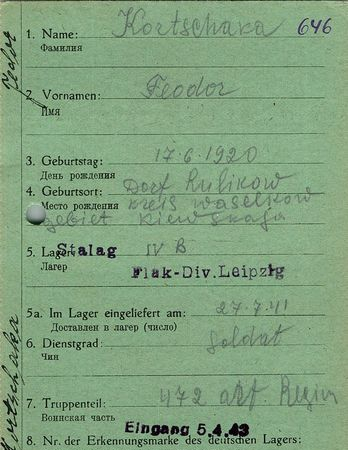 1. Name: Kortschaka 646
Фамилия
2. Vornamen: Feodor
Имя
3. Geburtstag: 17.6.1920
День рождения
4. Geburtsort: Dorf Kulikow
Место рождения kreis waselkow
gebiet Kiewskaja
5. Lager: Stalag IV B
Лагер Flak-Div. Leipzig
5a. Im Lager eingeliefert am: 27.7.41
Доставлен в лагер (число)
6. Dienstgrad: Soldat
Чин
7. Truppenteil: 472 art. Regim
Воинская часть
Eingang 5.4.43
8. Nr. der Erkennungsmarke des deutschen Lagers:
Feodor
Kortschaka